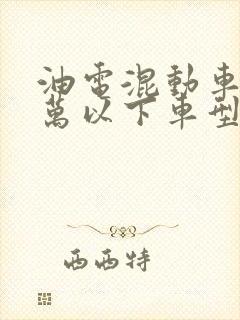 油電混動車
萬以下車型
西西特